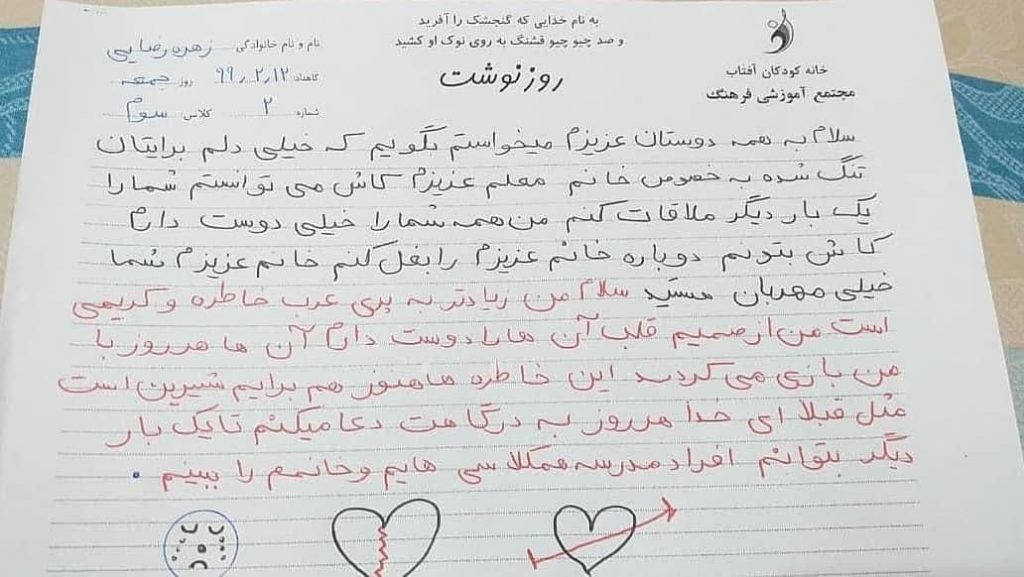 به نام خدایی که گنجشک را آفرید
و صد جیو جیو قشنگ به روی نوک او کشید
روز نوشت
خانه کودکان آفتاب
مجتمع آموزشی فرهنگ
نام و نام خانوادگی زهره رضایی
گاهنامه ۹۹٫۲٫۱۲ روز جمعه
شماره ۲ کلاس سوم
سلام به همه دوستان عزیزم میخواستم بگویم که خیلی دلم برایتان
تنگ شده به خصوص خانم معلم عزیزم کاش می توانستم شما را
یک بار دیگر ملاقات کنم من همه شما را خیلی دوست دارم
کاش بتونم دوباره خانم عزیزم را بغل کنم خانم عزیزم شما
خیلی مهربان هستید سلام من زیادتر به عرب خاطره و کریمی
است من از صمیم قلب آن ها را دوست دارم آن ها هر روز با
من بازی می کردند این خاطره ها هنوز هم برایم شیرین است
مثل قبلا ای خدا هر روز به درگاهت دعا میکنم تا یک بار
دیگر بتوانم افراد مدرسه همکلاسی هایم و خانمم را ببینم .